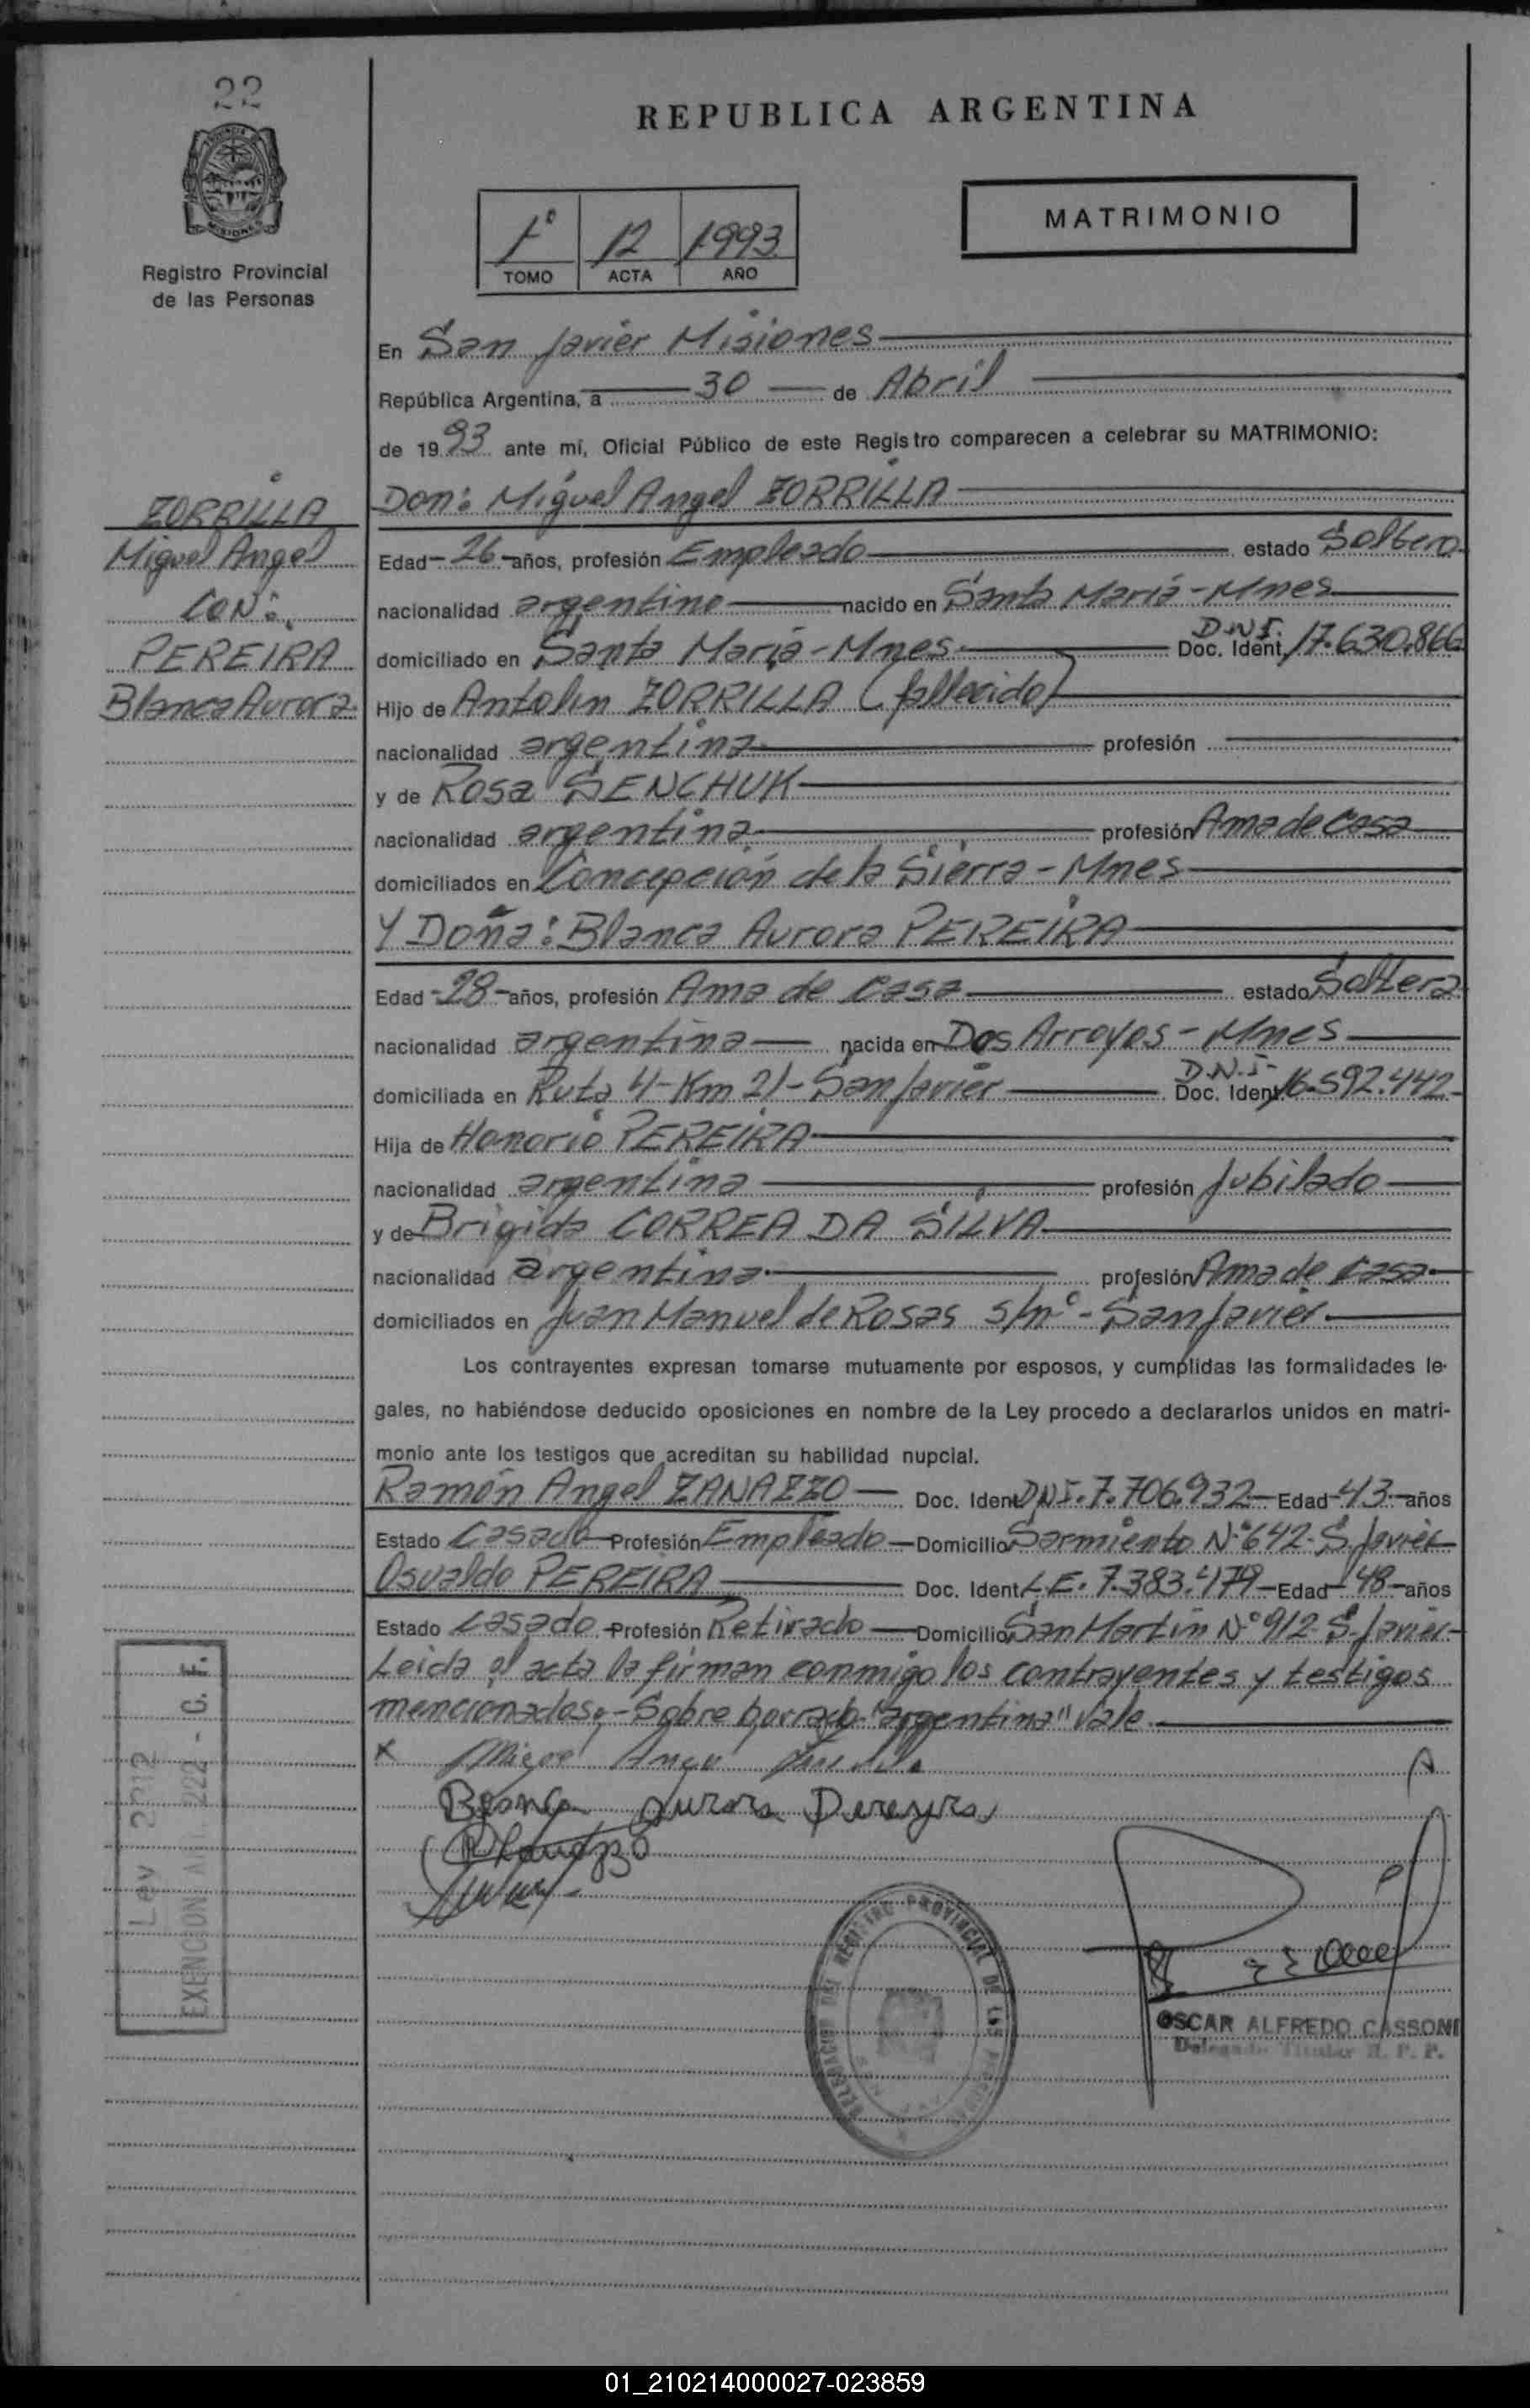 22
REPUBLICA ARGENTINA
MATRIMONIO
1º 12 1993
TOMO ACTA AÑO
MISIONES
Registro Provincial
de las Personas
En San Javier Misiones
República Argentina, a 30 de Abril
de 1993 ante mí, Oficial Público de este Registro comparecen a celebrar su MATRIMONIO:
ZORRILLA
Miguel Angel
CON:
PEREIRA
Blanca Aurora
Don: Miguel Angel ZORRILLA
Edad - 26 - años, profesión Empleado estado Soltero
nacionalidad argentino nacido en Santa María - Mnes
domiciliado en Santa María - Mnes. D.N.I. Doc. Ident. 17.630.866
Hijo de Antolin ZORRILLA (fallecido)
nacionalidad argentina profesión
y de Rosa SENCHUK
nacionalidad argentina profesión Ama de casa
domiciliados en Concepción de la Sierra - Mnes
Y Doña: Blanca Aurora PEREIRA
Edad - 28 - años, profesión Ama de casa estado Soltera
nacionalidad argentina nacida en Dos Arroyos - Mnes
domiciliada en Ruta 4 - Km 21 - San Javier D.N.I. Doc. Ident. 16.592.442
Hija de Honorio PEREIRA
nacionalidad argentina profesión Jubilado
y de Brigida CORREA DA SILVA
nacionalidad argentina profesión Ama de casa
domiciliados en Juan Manuel de Rosas s/nº - San Javier
Los contrayentes expresan tomarse mutuamente por esposos, y cumplidas las formalidades le-
gales, no habiéndose deducido oposiciones en nombre de la Ley procedo a declararlos unidos en matri-
monio ante los testigos que acreditan su habilidad nupcial.
Ramón Angel ZANAZZO Doc. Ident. DNI. 7.706.932 - Edad - 43 - años
Estado Casado Profesión Empleado Domicilio Sarmiento Nº 642 - S. Javier
Osvaldo PEREIRA Doc. Ident. L.E. 7.383.479 - Edad - 48 - años
Estado Casado Profesión Retirado Domicilio San Martín Nº 912 - S. Javier
Leida el acta la firman conmigo los contrayentes y testigos
mencionados.- Sobre borrado "argentina" Vale
x Miguel Angel
Aurora Pereyra
Ley 2212
EXENCION 222 - C. F.
REGISTRO PROVINCIAL DE LAS
OSCAR ALFREDO CASSONI
Delegado Titular R. P. P.
01_210214000027-023859